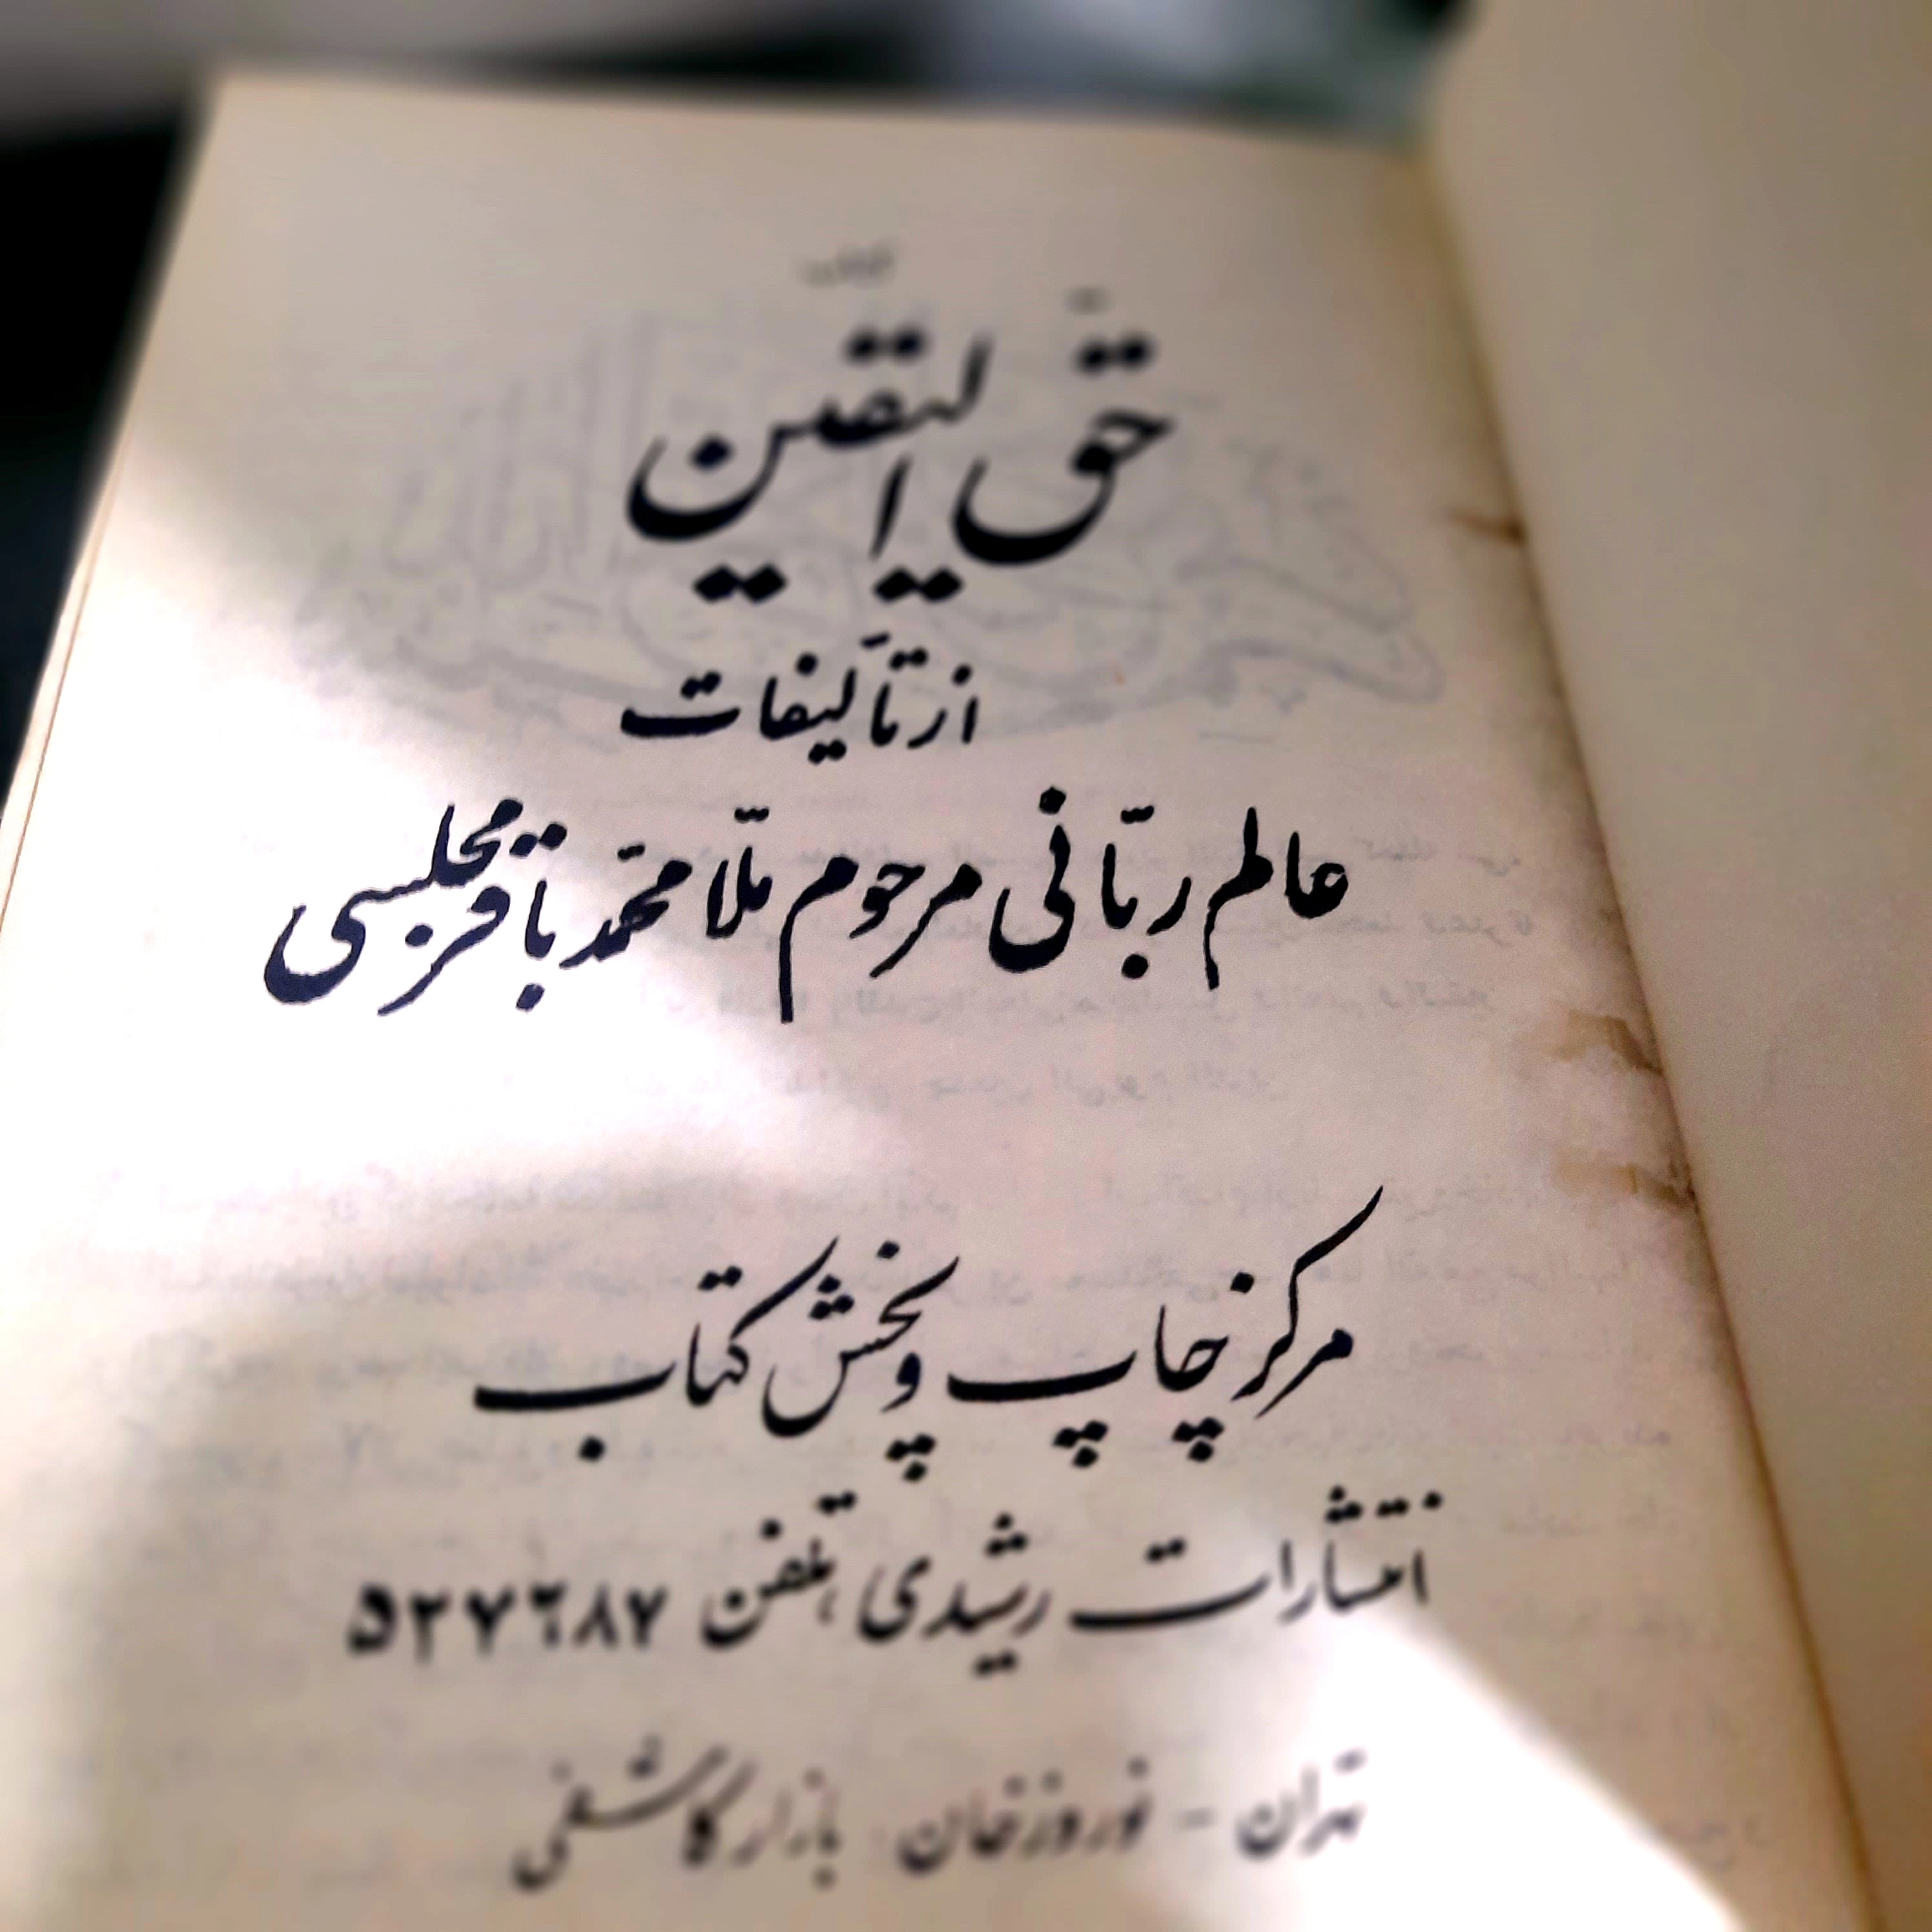 حق الیقین
از تألیفات
عالم ربّانی مرحوم ملّا محمّد باقر مجلسی
مرکز چاپ و پخش کتاب
انتشارات رشیدی، تلفن ۵۲۷۶۸۷
تهران - نوروزخان بازار کاشفی